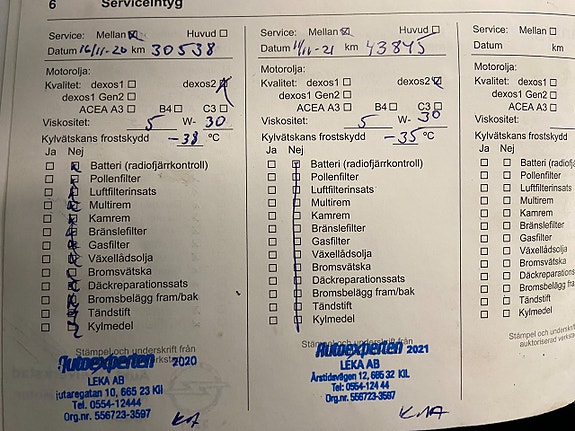 6 Serviceintyg
Service: Mellan ☒ Huvud ☐
Datum 16/11-20 km 30538
Motorolja:
Kvalitet: dexos1 ☐ dexos2 ☒
dexos1 Gen2 ☐
ACEA A3 ☐ B4 ☐ C3 ☐
Viskositet: 5 W- 30
Kylvätskans frostskydd -38 °C
Ja Nej
Batteri (radiofjärrkontroll)
Pollenfilter
Luftfilterinsats
Multirem
Kamrem
Bränslefilter
Gasfilter
Växellådsolja
Bromsvätska
Däckreparationssats
Bromsbelägg fram/bak
Tändstift
Kylmedel
Stämpel och underskrift från
Autoexperten 2020
LEKA AB
jutaregatan 10, 665 23 Kil
Tel. 0554-12444
Org.nr. 556723-3597
Service: Mellan ☒ Huvud ☐
Datum 11/11-21 km 43845
Motorolja:
Kvalitet: dexos1 ☐ dexos2 ☒
dexos1 Gen2 ☐
ACEA A3 ☐ B4 ☐ C3 ☐
Viskositet: 5 W- 30
Kylvätskans frostskydd -35 °C
Ja Nej
Batteri (radiofjärrkontroll)
Pollenfilter
Luftfilterinsats
Multirem
Kamrem
Bränslefilter
Gasfilter
Växellådsolja
Bromsvätska
Däckreparationssats
Bromsbelägg fram/bak
Tändstift
Kylmedel
Stämpel och underskrift från
Autoexperten 2021
LEKA AB
Årstidsvägen 12, 665 32 KIL
Tel: 0554-124 44
Org.nr. 556723-3597
Service: Me
Datum
Motorolja:
Kvalitet: dexos1
dexos1 Gen2
ACEA A3
Viskositet:
Kylvätskans fros
Ja Nej
Batteri
Pollenfilter
Luftfilter
Multirem
Kamrem
Bränslefilter
Gasfilter
Växellåd
Bromsvä
Däckrepar
Bromsbel
Tändstift
Kylmedel
Stämpel och unders
auktoriserad verkst